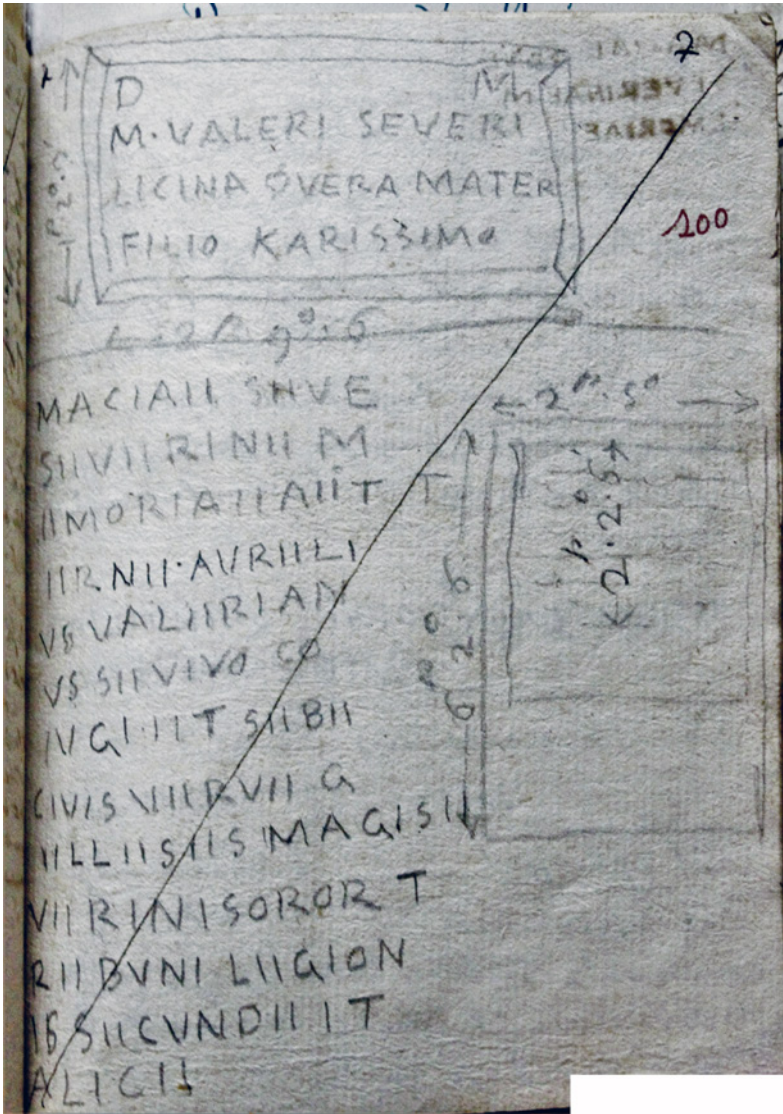 7
D M
M·VALERI SEVERI
LICINA VERA MATER
FILIO KARISSIMO
100
MACIAII SIIVE
SIIVIIRINII M
IIMORIAIIAIIT T
IIRNII·AVRIILI
VS VALIIRIAN
VS SIIVIVO CO
IVGI·IIT SIIBII
CIVIS VIIRVII G
IILLIISIIS MAGISII
VIIRINISOROR T
RIIBVNI LIIGION
IS SIICVNDII IT
ALICII
2P·5º
2·2·5
6 2·6